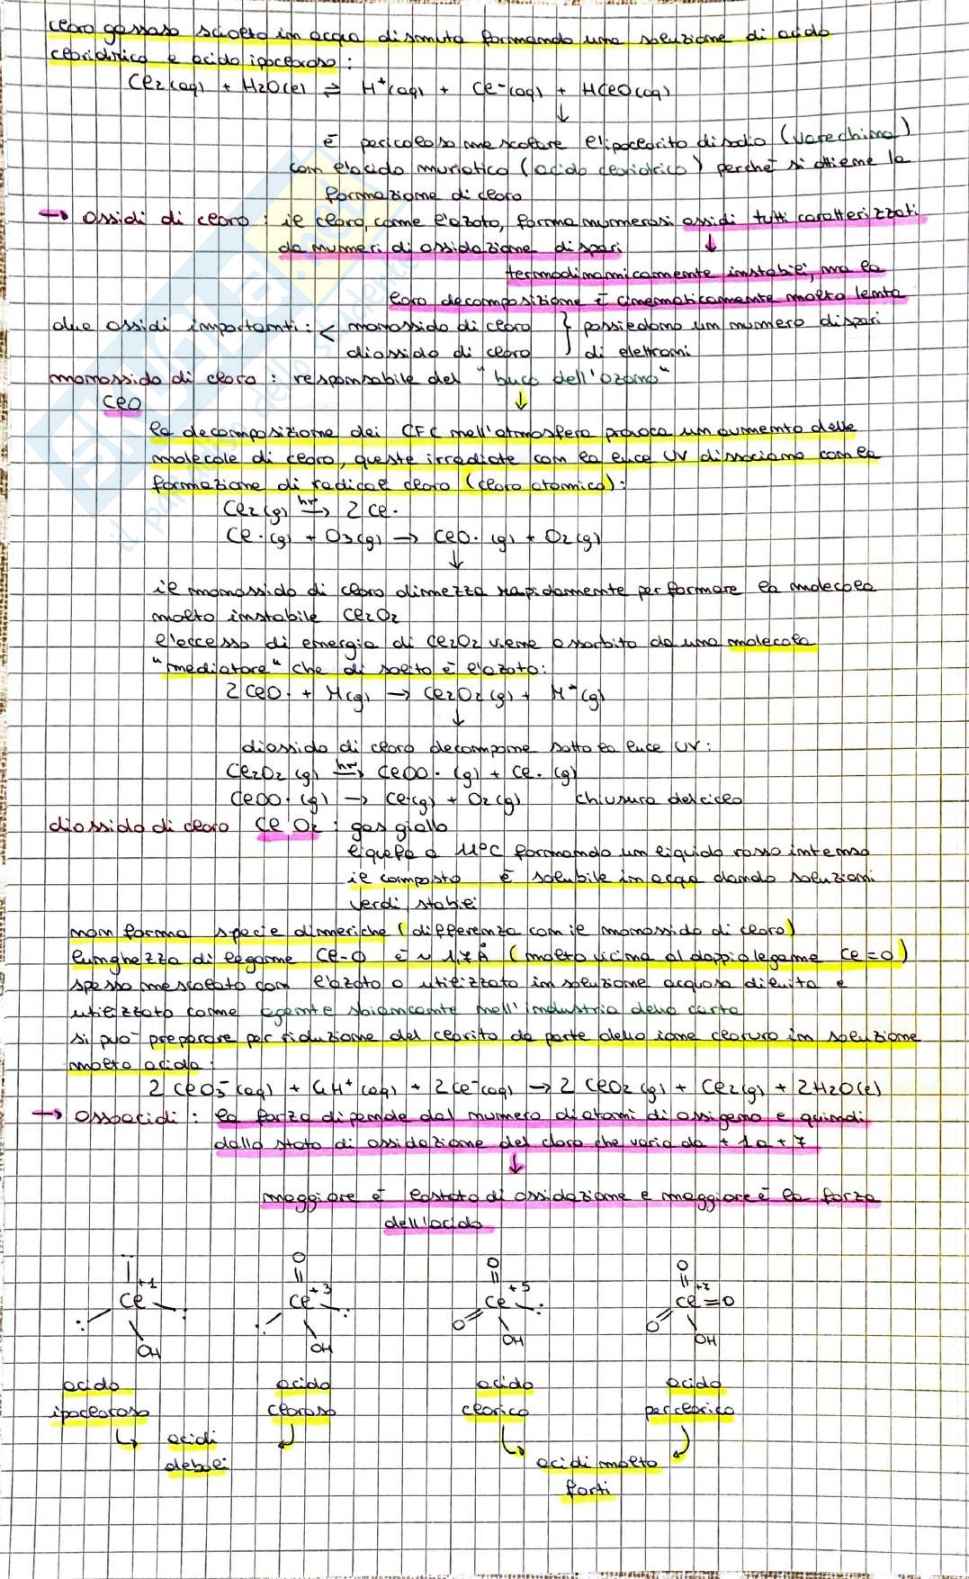 cloro gassoso sciolto in acqua dismuta formando una soluzione di acido
cloridrico e acido ipocloroso :
Cl2(aq) + H2O(l) ⇌ H+(aq) + Cl-(aq) + HClO(aq)
↓
è pericoloso mescolare l'ipoclorito di sodio (varechina)
con l'acido muriatico (acido cloridrico) perché si ottiene la
formazione di cloro
→ ossidi di cloro : il cloro, come l'azoto, forma numerosi ossidi tutti caratterizzati
da numeri di ossidazione dispari ↓
termodinamicamente instabili, ma la
loro decomposizione è cineticamente molto lenta
due ossidi importanti : < monossido di cloro } possiedono un numero dispari
diossido di cloro di elettroni
monossido di cloro : responsabile del "buco dell'ozono"
ClO ↓
la decomposizione dei CFC nell'atmosfera provoca un aumento delle
molecole di cloro, queste irradiate con la luce UV dissociano con la
formazione di radicali cloro (cloro atomico) :
Cl2(g) hν→ 2Cl·
Cl·(g) + O3(g) → ClO·(g) + O2(g)
↓
il monossido di cloro dimerizza rapidamente per formare la molecola
molto instabile Cl2O2
l'eccesso di energia di Cl2O2 viene assorbito da una molecola
"mediatore" che di solito è l'azoto:
2ClO· + M(g) → Cl2O2(g) + M*(g)
↓
diossido di cloro decompone sotto la luce UV:
Cl2O2(g) hν→ ClOO·(g) + Cl·(g)
ClOO·(g) → Cl(g) + O2(g) chiusura del ciclo
diossido di cloro ClO2 : gas giallo
liquefa a 11°C formando un liquido rosso intenso
il composto è solubile in acqua dando soluzioni
verdi stabili
non forma specie dimeriche (differenza con il monossido di cloro)
lunghezza di legame Cl-O è ~ 1,7Å (molto vicina al doppio legame Cl=O)
spesso mescolato con l'azoto o utilizzato in soluzione acquosa diluita e
utilizzato come agente sbiancante nell'industria della carta
si può preparare per riduzione del clorito da parte dello ione cloruro in soluzione
molto acida:
2 ClO3-(aq) + 4H+(aq) + 2Cl-(aq) → 2 ClO2(g) + Cl2(g) + 2H2O(l)
→ ossoacidi : la forza dipende dal numero di atomi di ossigeno e quindi
dallo stato di ossidazione del cloro che varia da +1 a +7
↓
maggiore è lo stato di ossidazione e maggiore è la forza
dell'acido
O O O
+1 +3 +5 +7
Cl Cl Cl Cl=O
O O
OH OH OH OH
acido acido acido acido
ipocloroso cloroso clorico perclorico
acidi
deboli
acidi molto
forti